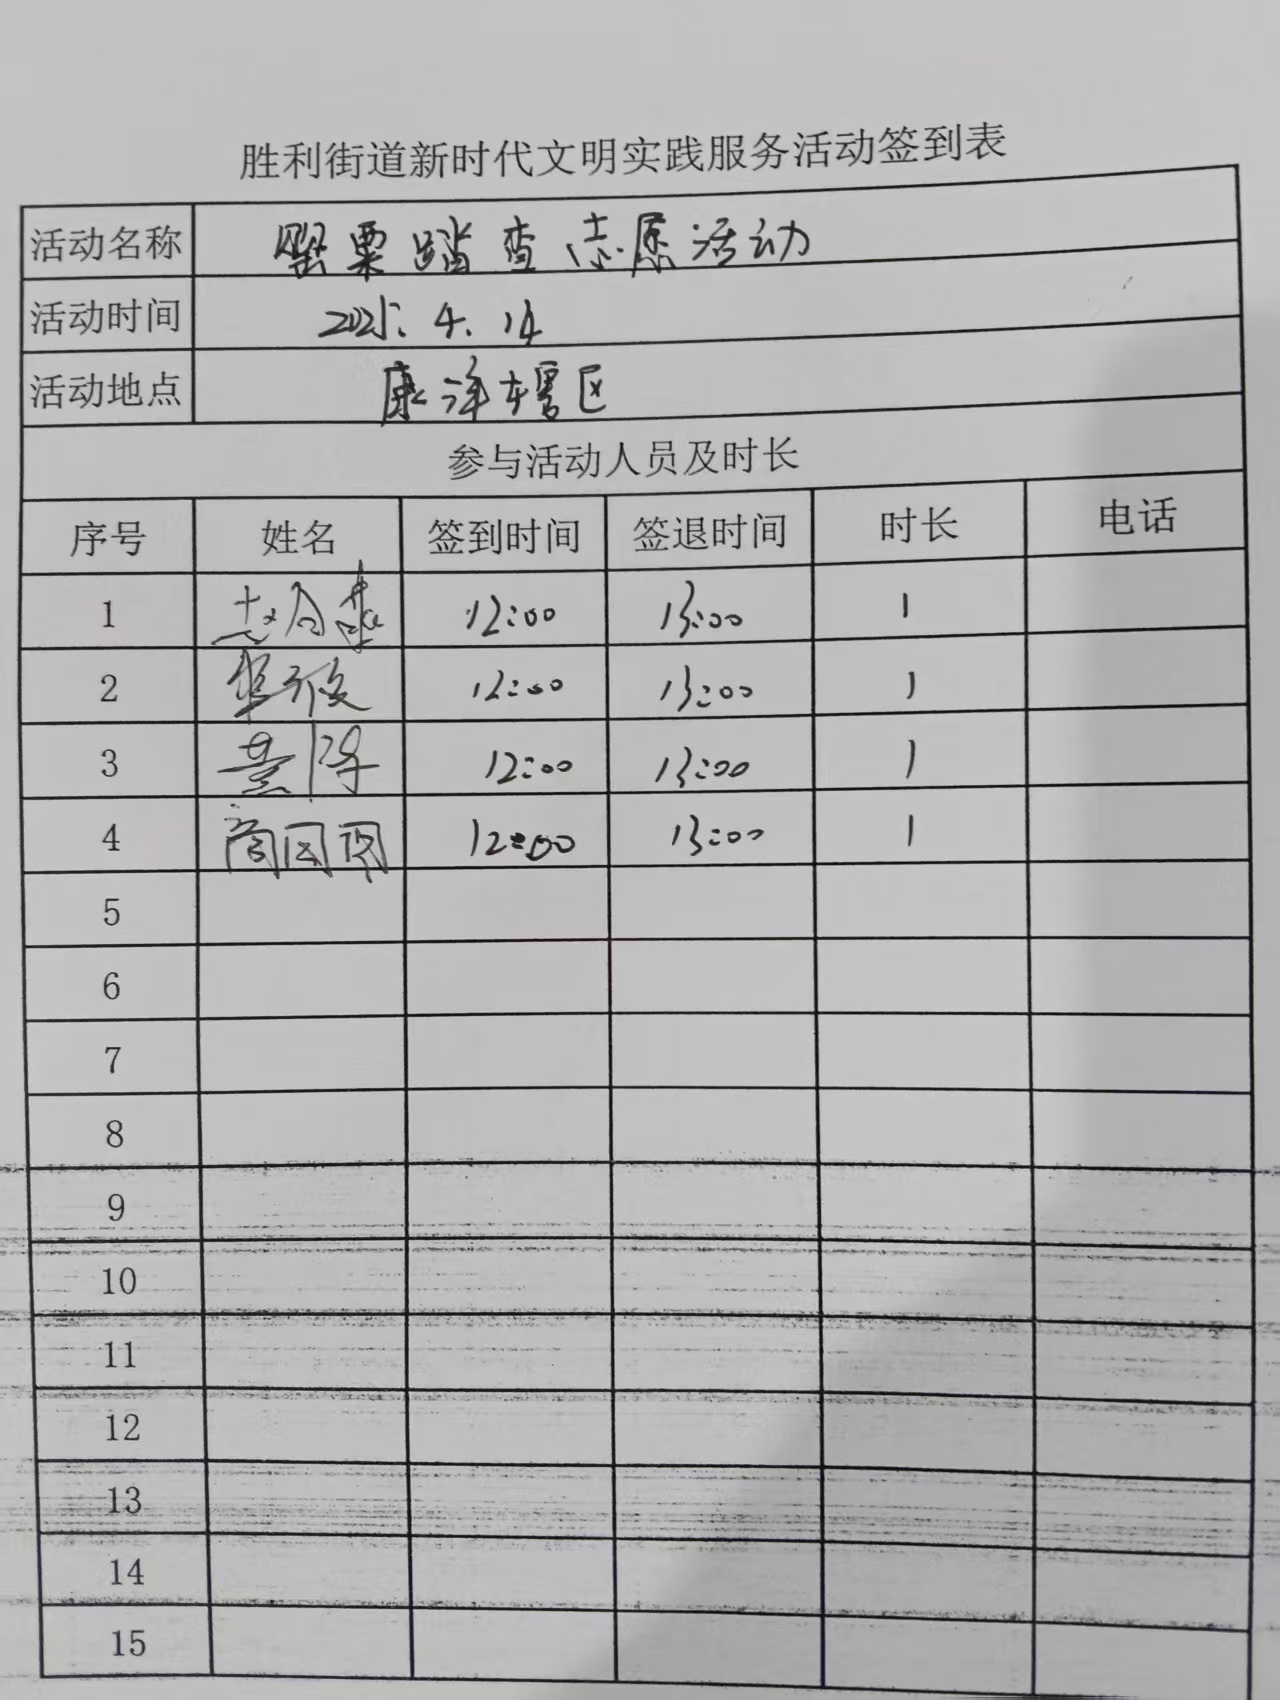 胜利街道新时代文明实践服务活动签到表
活动名称 罂粟踏查志愿活动
活动时间 2025.4.14
活动地点 康洋辖区
参与活动人员及时长
序号 姓名 签到时间 签退时间 时长 电话
1 12:00 13:00 1
2 12:00 13:00 1
3 12:00 13:00 1
4 商园园 12:00 13:00 1
5
6
7
8
9
10
11
12
13
14
15